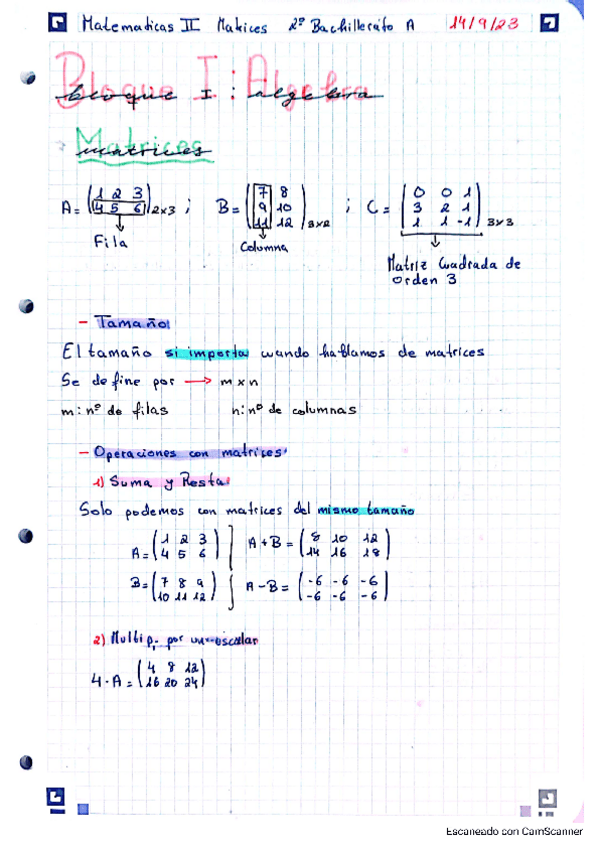 Matematicas II Matrices 2º Bachillerato A 14/9/23
Bloque I: Algebra
bloque I: algebra
Matrices
matrices
A = (1 2 3 / 4 5 6) 2x3 ; B = (7 8 / 9 10 / 11 12) 3x2 ; C = (0 0 1 / 3 2 1 / 1 1 -1) 3x3
Fila Columna Matriz Cuadrada de
orden 3
- Tamaño
El tamaño si importa cuando hablamos de matrices
Se define por → m x n
m: nº de filas n: nº de columnas
- Operaciones con matrices
1) Suma y Resta
Solo podemos con matrices del mismo tamaño
A = (1 2 3 / 4 5 6) A+B = (8 10 12 / 14 16 18)
B = (7 8 9 / 10 11 12) A-B = (-6 -6 -6 / -6 -6 -6)
2) Multip. por un escalar
4·A = (4 8 12 / 16 20 24)
Escaneado con CamScanner